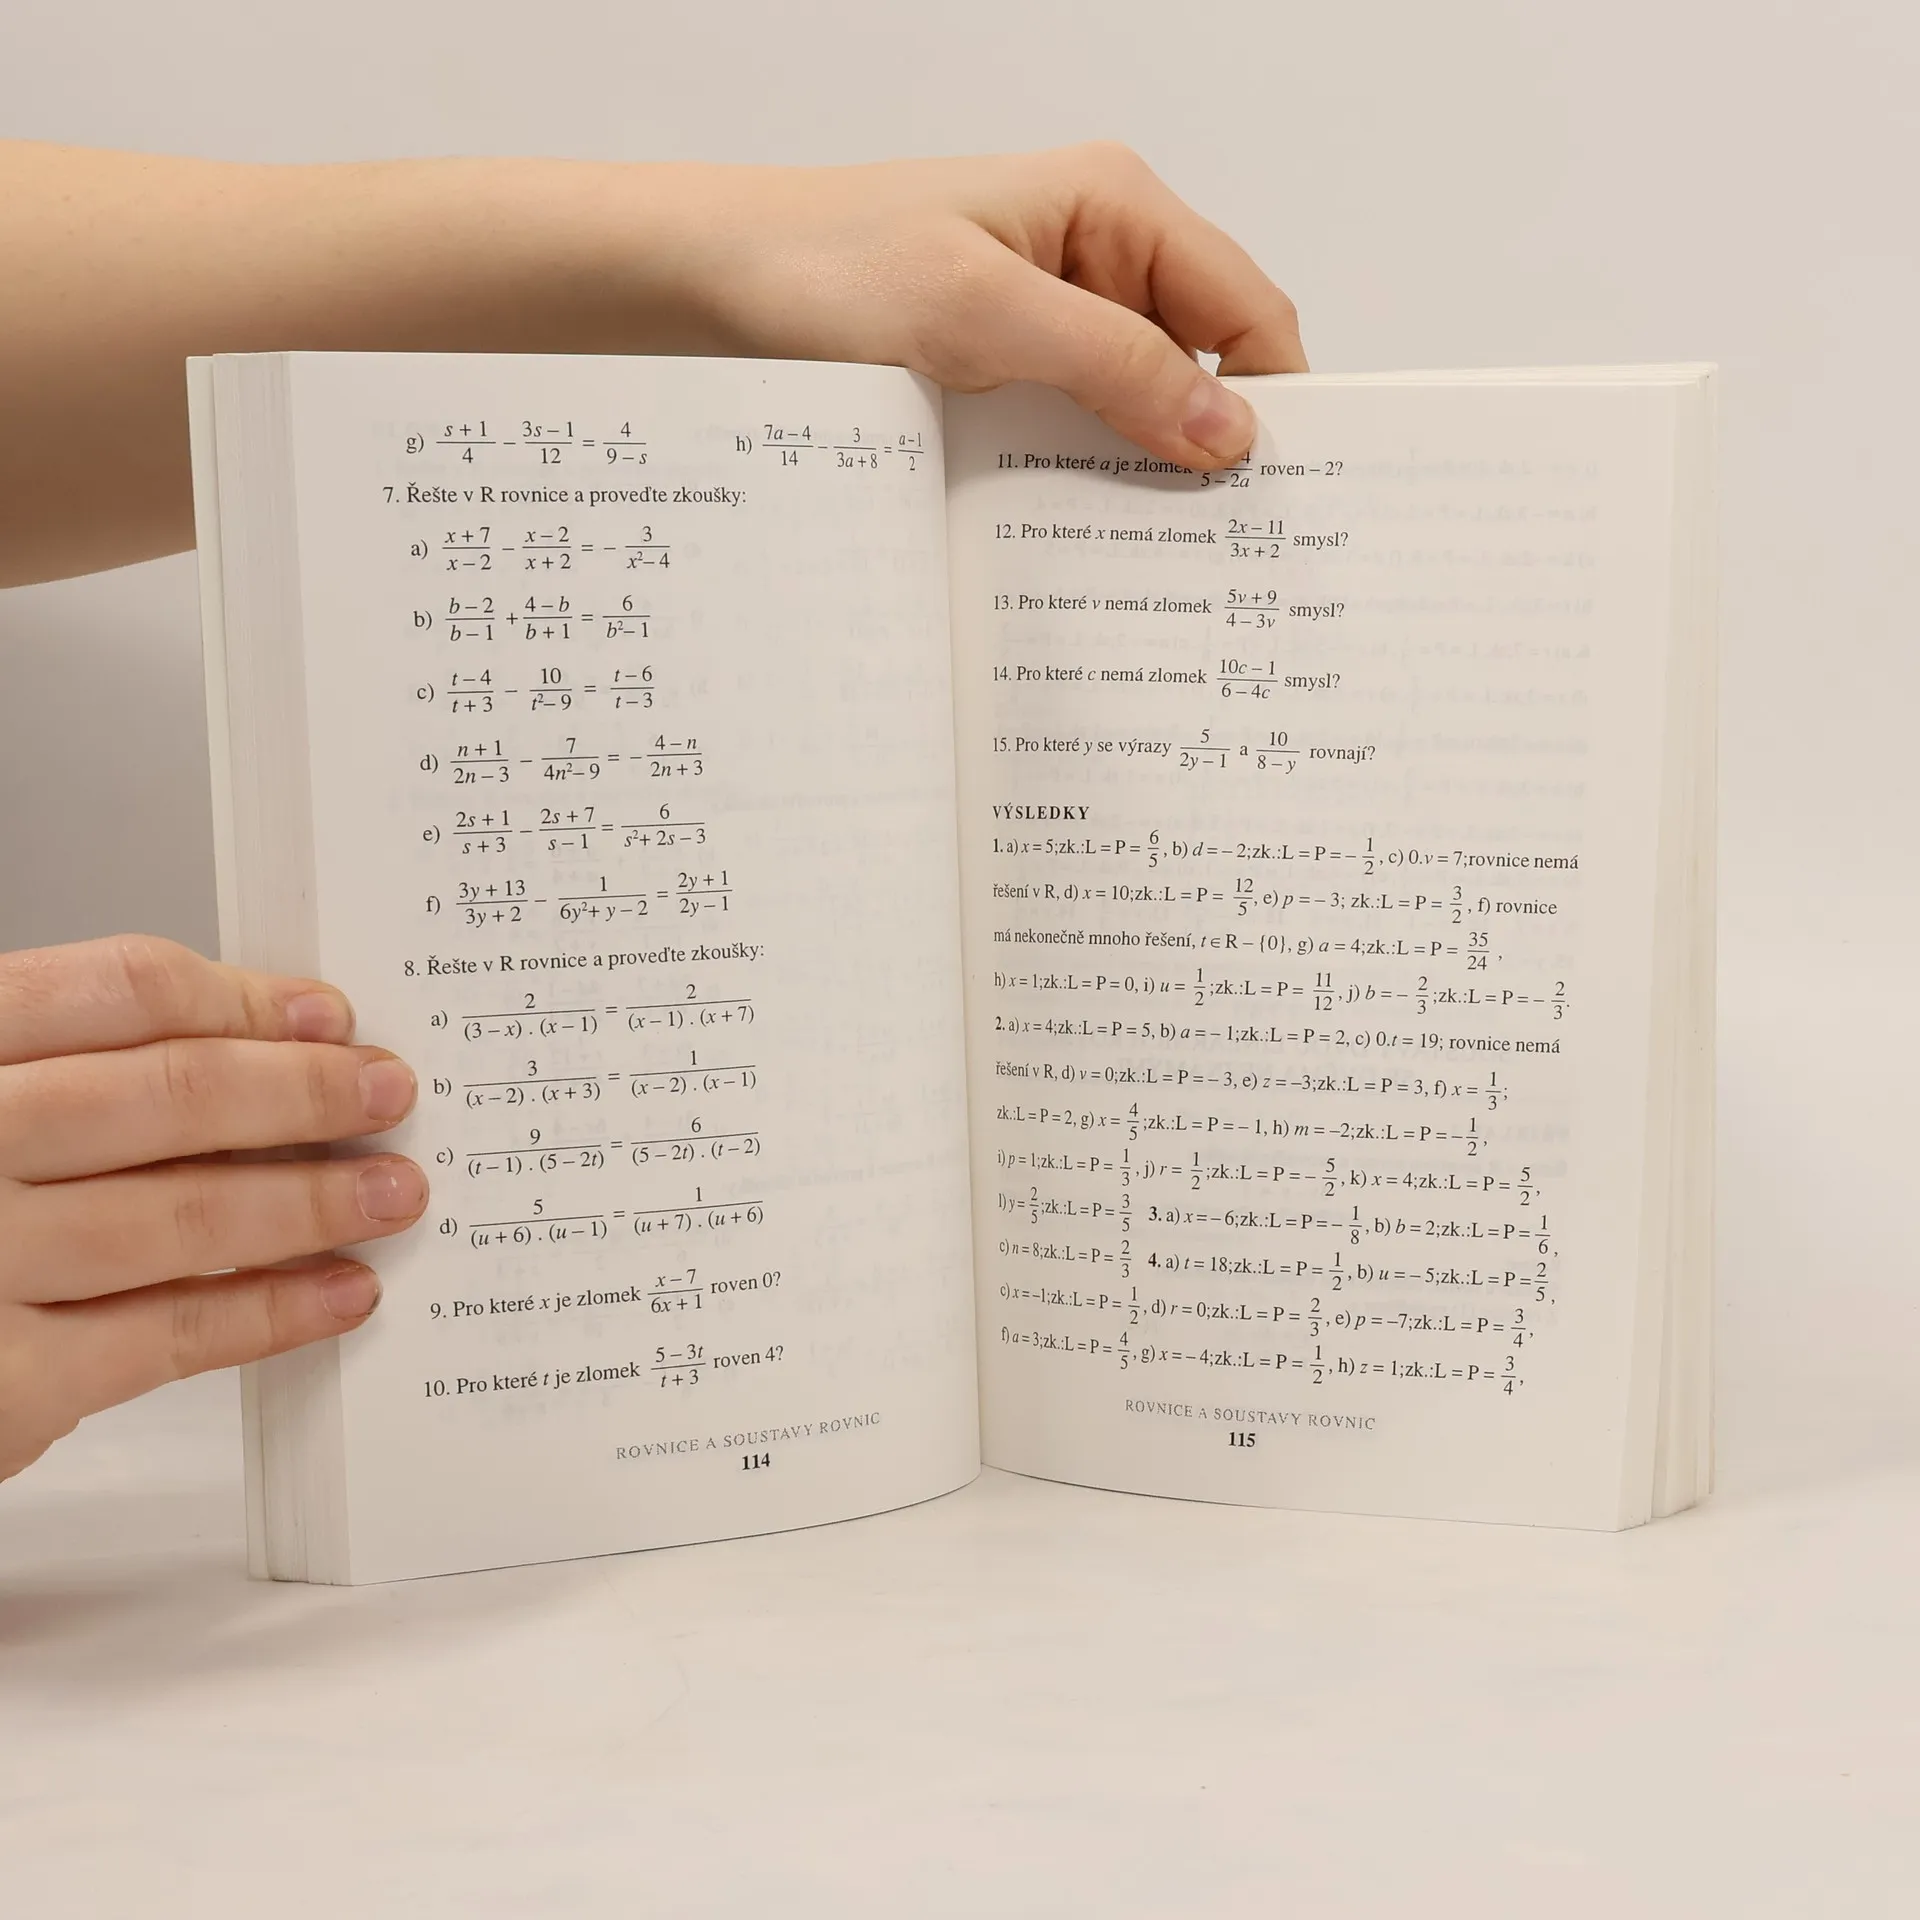 g) (s + 1)/4 – (3s – 1)/12 = 4/(9 – s) h) (7a – 4)/14 – 3/(3a + 8) = (a – 1)/2
7. Řešte v R rovnice a proveďte zkoušky:
a) (x + 7)/(x – 2) – (x – 2)/(x + 2) = – 3/(x² – 4)
b) (b – 2)/(b – 1) + (4 – b)/(b + 1) = 6/(b² – 1)
c) (t – 4)/(t + 3) – 10/(t² – 9) = (t – 6)/(t – 3)
d) (n + 1)/(2n – 3) – 7/(4n² – 9) = – (4 – n)/(2n + 3)
e) (2s + 1)/(s + 3) – (2s + 7)/(s – 1) = 6/(s² + 2s – 3)
f) (3y + 13)/(3y + 2) – 1/(6y² + y – 2) = (2y + 1)/(2y – 1)
8. Řešte v R rovnice a proveďte zkoušky:
a) 2/((3 – x) . (x – 1)) = 2/((x – 1) . (x + 7))
b) 3/((x – 2) . (x + 3)) = 1/((x – 2) . (x – 1))
c) 9/((t – 1) . (5 – 2t)) = 6/((5 – 2t) . (t – 2))
d) 5/((u + 6) . (u – 1)) = 1/((u + 7) . (u + 6))
9. Pro které x je zlomek (x – 7)/(6x + 1) roven 0?
10. Pro které t je zlomek (5 – 3t)/(t + 3) roven 4?
ROVNICE A SOUSTAVY ROVNIC
114
11. Pro které a je zlomek 5 – 2a roven – 2?
12. Pro které x nemá zlomek (2x – 11)/(3x + 2) smysl?
13. Pro které v nemá zlomek (5v + 9)/(4 – 3v) smysl?
14. Pro které c nemá zlomek (10c – 1)/(6 – 4c) smysl?
15. Pro které y se výrazy 5/(2y – 1) a 10/(8 – y) rovnají?
VÝSLEDKY
1. a) x = 5;zk.:L = P = 6/5, b) d = – 2;zk.:L = P = – 1/2, c) 0.v = 7;rovnice nemá
řešení v R, d) x = 10;zk.:L = P = 12/5, e) p = – 3; zk.:L = P = 3/2, f) rovnice
má nekonečně mnoho řešení, t ∈ R – {0}, g) a = 4;zk.:L = P = 35/24,
h) x = 1;zk.:L = P = 0, i) u = 1/2;zk.:L = P = 11/12, j) b = – 2/3;zk.:L = P = – 2/3.
2. a) x = 4;zk.:L = P = 5, b) a = – 1;zk.:L = P = 2, c) 0.t = 19; rovnice nemá
řešení v R, d) v = 0;zk.:L = P = – 3, e) z = –3;zk.:L = P = 3, f) x = 1/3;
zk.:L = P = 2, g) x = 4/5;zk.:L = P = – 1, h) m = –2;zk.:L = P = – 1/2,
i) p = 1;zk.:L = P = 1/3, j) r = 1/2;zk.:L = P = – 5/2, k) x = 4;zk.:L = P = 5/2,
l) y = 2/5;zk.:L = P = 3/5 3. a) x = – 6;zk.:L = P = – 1/8, b) b = 2;zk.:L = P = 1/6,
c) n = 8;zk.:L = P = 2/3 4. a) t = 18;zk.:L = P = 1/2, b) u = – 5;zk.:L = P = 2/5,
c) x = –1;zk.:L = P = 1/2, d) r = 0;zk.:L = P = 2/3, e) p = –7;zk.:L = P = 3/4,
f) a = 3;zk.:L = P = 4/5, g) x = – 4;zk.:L = P = 1/2, h) z = 1;zk.:L = P = 3/4,
ROVNICE A SOUSTAVY ROVNIC
115